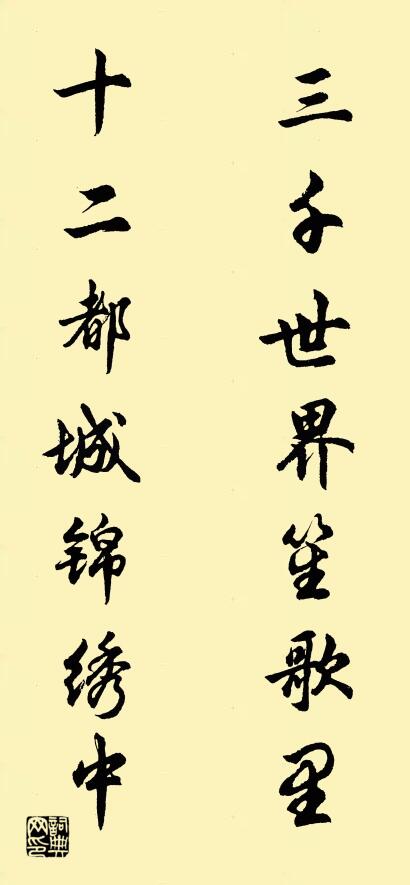 三千世界笙歌里
十二都城锦绣中
词典网印